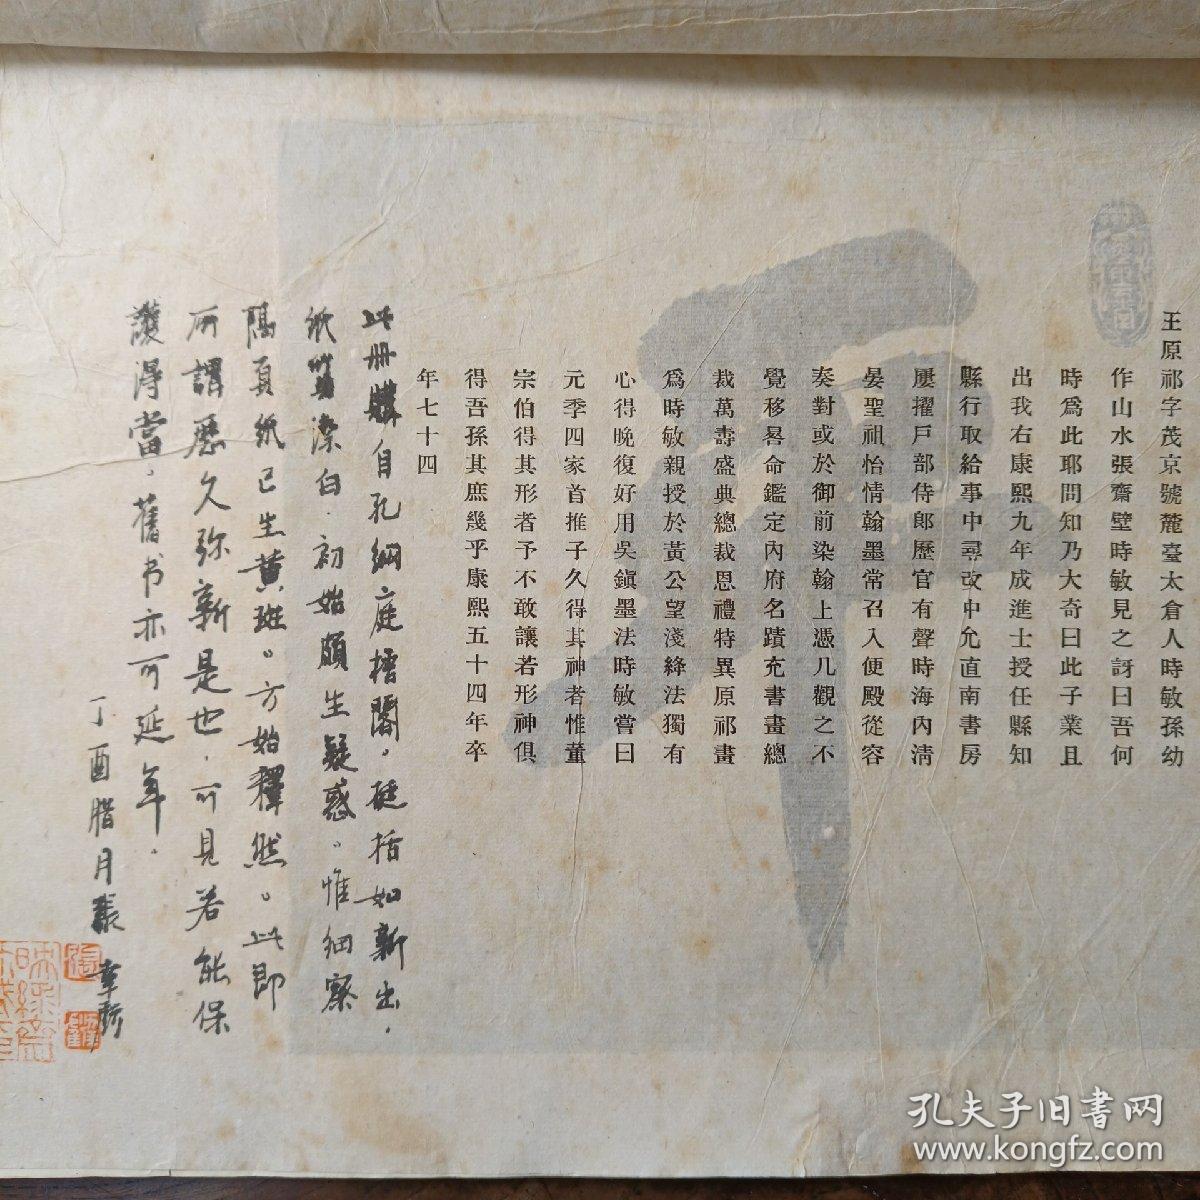 王原祁字茂京號麓臺太倉人時敏孫幼
作山水張齋壁時敏見之訝曰吾何
時爲此耶問知乃大奇曰此子業且
出我右康熙九年成進士授任縣知
縣行取給事中尋改中允直南書房
屢擢戸部侍郎歷官有聲時海內淸
晏聖祖怡情翰墨常召入便殿從容
奏對或於御前染翰上憑几觀之不
覺移晷命鑑定內府名蹟充書畫總
裁萬壽盛典總裁恩禮特異原祁畫
爲時敏親授於黃公望淺絳法獨有
心得晚復好用吳鎭墨法時敏嘗曰
元季四家首推子久得其神者惟董
宗伯得其形者予不敢讓若形神俱
得吾孫其庶幾乎康熙五十四年卒
年七十四
此册購自孔網庭槢閣，挺括如新出，
紙潔白．初始頗生疑惑。惟細察
隔頁紙已生黃斑。方始釋然。此即
所謂歷久弥新是也．可見若能保
護得當．舊书亦可延年．
丁酉腊月
孔夫子旧书网
www.kongfz.com